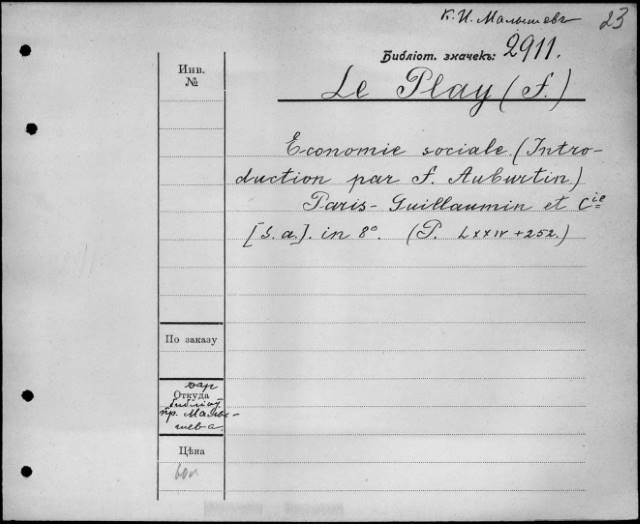 К. И. Малышевъ 23
Библіот. значекъ: 2911.
Инв.
№
Le Play (F.)
Economie sociale (Intro-
duction par F. Auburtin)
Paris - Guillaumin et Cie
[S. a.]. in 8°. (P. LXXIV + 252.)
По заказу
Откуда
пр. Малы-
шева.
Цѣна